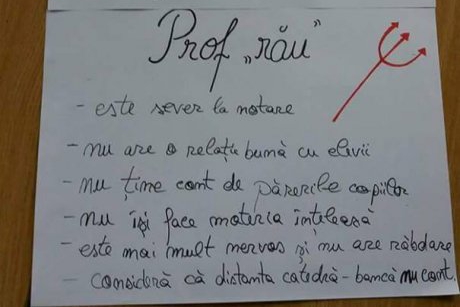 Prof „rău”
- este sever la notare
- nu are o relație bună cu elivii
- nu ține cont de părerile copiilor
- nu își face materia înțeleasă
- este mai mult nervos și nu are răbdare
- consideră că distanta catedră - bancă nu cont.